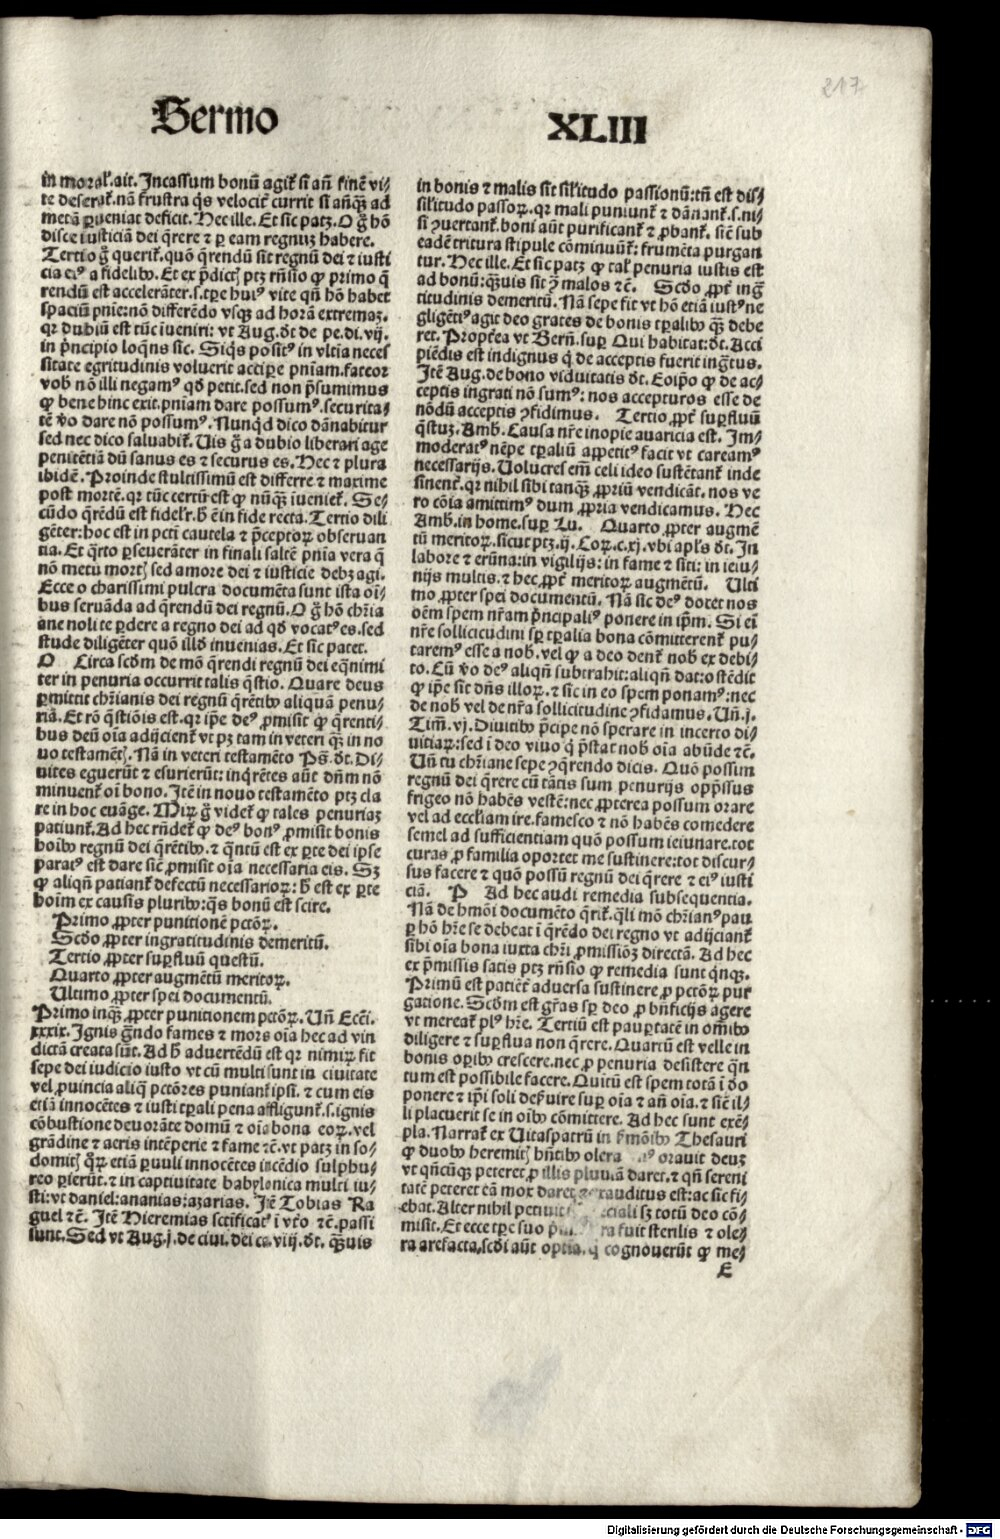 217
Sermo
XLIII
in moral̛.ait. Incassum bonū agit̛ si añ finē vi⸗
te deserat̛.nā frustra q̇s velocit̛ currit si añq̄ꝫ ad
metā ꝑueniat deficit. Hec ille. Et sic patꝫ. O g̊ hō
disce iusticiā dei q̄rere ⁊ ꝑ eam regnuꝫ habere.
Tertio g̊ querit̛.quō q̄rendū sit regnū dei ⁊ iusti
cia ei⁹ a fidelibꝰ. Et ex p̄dictꝭ ptꝫ rn̄sio ꝙ primo q̄
rendū est accelerāter.s.tꝑe hui⁹ vite qn̄ hō habet
spaciū pn̄ie:nō differēdo vsqꝫ ad horā extremaꝫ.
qꝛ dubiū est tūc īueniri: vt Aug.dt̄ de pe.di.vij.
in ṗncipio loq̄ns sic. Siq̇s posit⁹ in vltīa neces
sitate egritudinis voluerit accipe pn̄iam.fateor
vob̛ nō illi negam⁹ qḋ petit.sed non p̄sumimus
ꝙ bene hinc exit.pn̄iam dare possum⁹.securita⸗
tē v̇o dare nō possum⁹. Nunqd̛ dico dānabitur
sed nec dico saluabit̛. Uis g̊ a dubio liberari age
penitētiā dū sanus es ⁊ securus es. Hec ⁊ plura
ibidē. Proinde stultissimū est differre ⁊ maxime
post mortē.qꝛ tūc certū est ꝙ nūq̄ꝫ īueniet̛. Se⸗
cūdo q̄rēdū est fidel̛r.h̛ ē in fide recta. Tertio dili
gēter:hoc est in pctī cautela ⁊ p̄ceptoꝝ obseruan
tia. Et q̄rto ꝑseuerāter in finali saltē pn̄ia vera q̄
nō metu mortꝭ sed amore dei ⁊ iusticie debꝫ agi.
Ecce o charissimi pulcra documēta sunt ista oī⸗
bus seruāda ad q̄rendū dei regnū. O g̊ hō chr̄ia
ane noli te ꝑdere a regno dei ad qḋ vocat⁹ es.sed
stude diligēter quō illḋ inuenias. Et sic patet.
O Circa scḋm de mō q̄rendi regnū dei eq̄nimi
ter in penuria occurrit talis q̄stio. Quare deus
ꝑmittit chr̄ianis dei regnū q̄rētibꝰ aliquā penu⸗
riā. Et rō q̄stiōis est.qꝛ ip̄e de⁹ ꝓmisit ꝙ q̄renti⸗
bus deū oīa adijcient̛ vt pꝫ tam in veteri q̄ꝫ in no
uo testamētꝭ. Nā in veteri testamēto Ps̄.dt̄. Di⸗
uites eguerūt ⁊ esurierūt: inq̇rētes aūt dn̄m nō
minuent̛ oī bono. Itē in nouo testamēto ptꝫ cla
re in hoc euāge. Miꝝ g̊ videt̛ ꝙ tales penuriaꝫ
patiunt̛. Ad hec rn̄det̛ ꝙ de⁹ bon⁹ ꝓmisit bonis
hoībꝰ regnū dei q̄rētibꝰ. ⁊ q̄ntū est ex ꝑte dei ipse
parat⁹ est dare sic̄ ꝓmisit oīa necessaria eis. Sꝫ
ꝙ aliqn̄ patiant̛ defectū necessarioꝝ: h̛ est ex ꝑte
hoīm ex causis pluribꝰ:q̄s bonū est scire.
Primo ꝓpter punitionē pctōꝝ.
Scḋo ꝓpter ingratitudinis demeritū.
Tertio ꝓpter suꝑfluū questū.
Quarto ꝓpter augmētū meritoꝝ.
Ultimo ꝓpter spei documentū.
Primo inqꝫ ꝓpter punitionem pctōꝝ. Un̄ Ecc̄i.
xxxix. Ignis g̊ndo fames ⁊ mors oīa hec ad vin
dictā creata sūt. Ad h̛ aduertēdū est qꝛ nimiꝝ fit
sepe dei iudicio iusto vt cū multi sunt in ciuitate
vel ꝓuincia aliq̄ pctōres puniant̛ ipsi. ⁊ cum eis
etiā innocētes ⁊ iusti tꝑali pena affligunt̛.s.ignis
cōbustione deuorāte domū ⁊ oīa bona eoꝝ.vel
grādine ⁊ aeris intēperie ⁊ fame ⁊c̄.vt patꝫ in so⸗
domitꝭ q̄ꝝ etiā ꝑuuli innocētes incēdio sulphu⸗
reo ꝑierūt.⁊ in captiuitate babylonica multi iu⸗
sti:vt daniel:ananias:azarias. Itē Tobias Ra
guel ⁊c̄. Itē Hieremias sctīficat⁹ ī vtō ⁊c̄.passi
sunt. Sed vt Aug.j.de ciui.dei ca.viij.dt̄. q̄ꝫuis
in bonis ⁊ malis sit sil̛itudo passionū:tn̄ est dis⸗
sil̛itudo passoꝝ.qꝛ mali puniunt̛ ⁊ dānant̛.s.ni⸗
si ꝯuertant̛.boni aūt purificant̛ ⁊ ꝓbant̛. sic̄ sub
eadē tritura stipule cōminuunt̛: frumēta purgan
tur. Hec ille. Et sic patꝫ ꝙ tal̛ penuria iustis est
ad bonū:q̄ꝫuis sit ꝯ̄ malos ⁊c̄. Scḋo ꝓpt̛ ing̊
titudinis demeritū. Nā sepe fit vt hō etiā iust⁹ ne
gligēti⁹ agit deo grates de bonis tꝑalibꝰ q̄ꝫ debe
ret. Propt̛ea vt Bern̄.suꝑ Qui habitat:dt̄. Acci
piēdis est indignus q̇ de acceptis fuerit ing̊tus.
Itē Aug.de bono viduitatis dt̄. Eoip̄o ꝙ de ac⸗
ceptis ingrati nō sum⁹: nos accepturos esse de
nōdū acceptis ꝯfidimus. Tertio ꝓpt̛ suꝑfluū
q̄stuꝫ. Amb. Causa nr̄e inopie auaricia est. Im⸗
moderat⁹ nēpe tꝑaliū appetit⁹ facit vt careamꝰ
necessarijs. Uolucres em̄ celi ideo sustētant̛ inde
sinent̛.qꝛ nihil sibi tanq̄ꝫ ꝓpriū vendicāt. nos ve
ro cōia amittim⁹ dum ꝓpria vendicamus. Hec
Amb.in home.suꝑ Lu. Quarto ꝓpter augmē
tū meritoꝝ.sicut ptꝫ.ij. Coꝝ.c.xj.vbi apl̛s dt̄. In
labore ⁊ erūna:in vigilijs: in fame ⁊ siti: in ieiu⸗
nijs multis.⁊ hec ꝓpt̛ meritoꝝ augmētū. Ulti
mo ꝓpter spei documentū. Nā sic de⁹ docet nos
oēm spem nr̄am ṗncipali⁹ ponere in ip̄m. Si eī
nr̄e sollicitudini suꝑ tꝑalia bona cōmitterent̛ pu⸗
tarem⁹ esse a nob̛.vel ꝙ a deo dent̛ nob̛ ex debi⸗
to. Cū v̇o de⁹ aliqn̄ subtrahit:aliqn̄ dat:ostēdit
ꝙ ip̄e sit dn̄s illoꝝ.⁊ sic in eo spem ponam⁹:nec
de nob̛ vel de nr̄a sollicitudine ꝯfidamus. Un̄.j.
Tim̄.vj. Diuitibꝰ p̄cipe nō sperare in incerto di⸗
uitiaꝝ:sed ī deo viuo q̇ p̄stat nob̛ oīa abūde ⁊c̄.
Un̄ tu chr̄iane sepe ꝯq̄rendo dicis. Quō possim
regnū dei q̄rere cū tātis sum penurijs opp̄ssus
frigeo nō habēs vestē:nec ꝓpterea possum orare
vel ad eccl̄iam ire.famesco ⁊ nō habēs comedere
semel ad sufficientiam quō possum ieiunare.tot
curas ꝓ familia oportet me sustinere:tot discur⸗
sus facere ⁊ quō possū regnū dei q̄rere ⁊ ei⁹ iusti
ciā. P Ad hec audi remedia subsequentia.
Nā de hmōi documēto q̄rit̛.q̄li mō chr̄ian⁹ pau
ꝑ hō hr̄e se debeat ī q̄rēdo dei regno vt adijciant̛
sibi oīa bona iuxta chr̄i ꝓmissiōꝫ directā. Ad hec
ex p̄missis satis ptꝫ rn̄sio ꝙ remedia sunt q̇nqꝫ.
Primū est patiēt̛ aduersa sustinere ꝓ pctōꝝ pur
gatione. Scḋm est gr̄as suꝑ deo ꝓ bn̄ficijs agere
vt mereat̛ pl⁹ hr̄e. Tertiū est pauꝑtatē in om̄ibꝰ
diligere ⁊ suꝑflua non q̄rere. Quartū est velle in
bonis oꝑibꝰ crescere.nec ꝓ penuria desistere q̄n
tum est possibile facere. Quītū est spem totā ī do
ponere ⁊ ip̄i soli deẜuire suꝑ oīa ⁊ añ oīa.⁊ sic̄ il⸗
li placuerit se in oībꝰ cōmittere. Ad hec sunt exē⸗
pla. Narrat̛ ex Uitaspatrū in ẜmōibꝰ Thesauri
ꝙ duobꝰ heremitꝭ hn̄tibꝰ olera orauit deuꝫ
vt qn̄cūqꝫ peteret ꝓ illis pluuiā daret.⁊ qn̄ sereni
tatē peteret eā mox daret ⁊ exauditus est:ac sic fi⸗
ebat. Alter nihil petiuit sꝫ totū deo cō⸗
misit. Et ecce tꝑe suo fuit sterilis ⁊ ole⸗
ra arefacta.scḋi aūt optīa. q̇ cognouerūt ꝙ me⸗
E
Digitalisierung gefördert durch die Deutsche Forschungsgemeinschaft - DFG